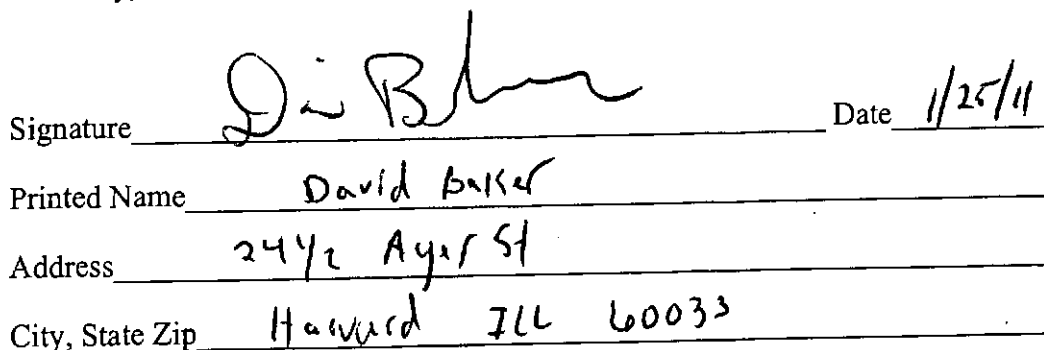 Signature Date 1/25/11
Printed Name David Baker
Address 24 1/2 Ayer St
City, State Zip Harvard ILL 60033